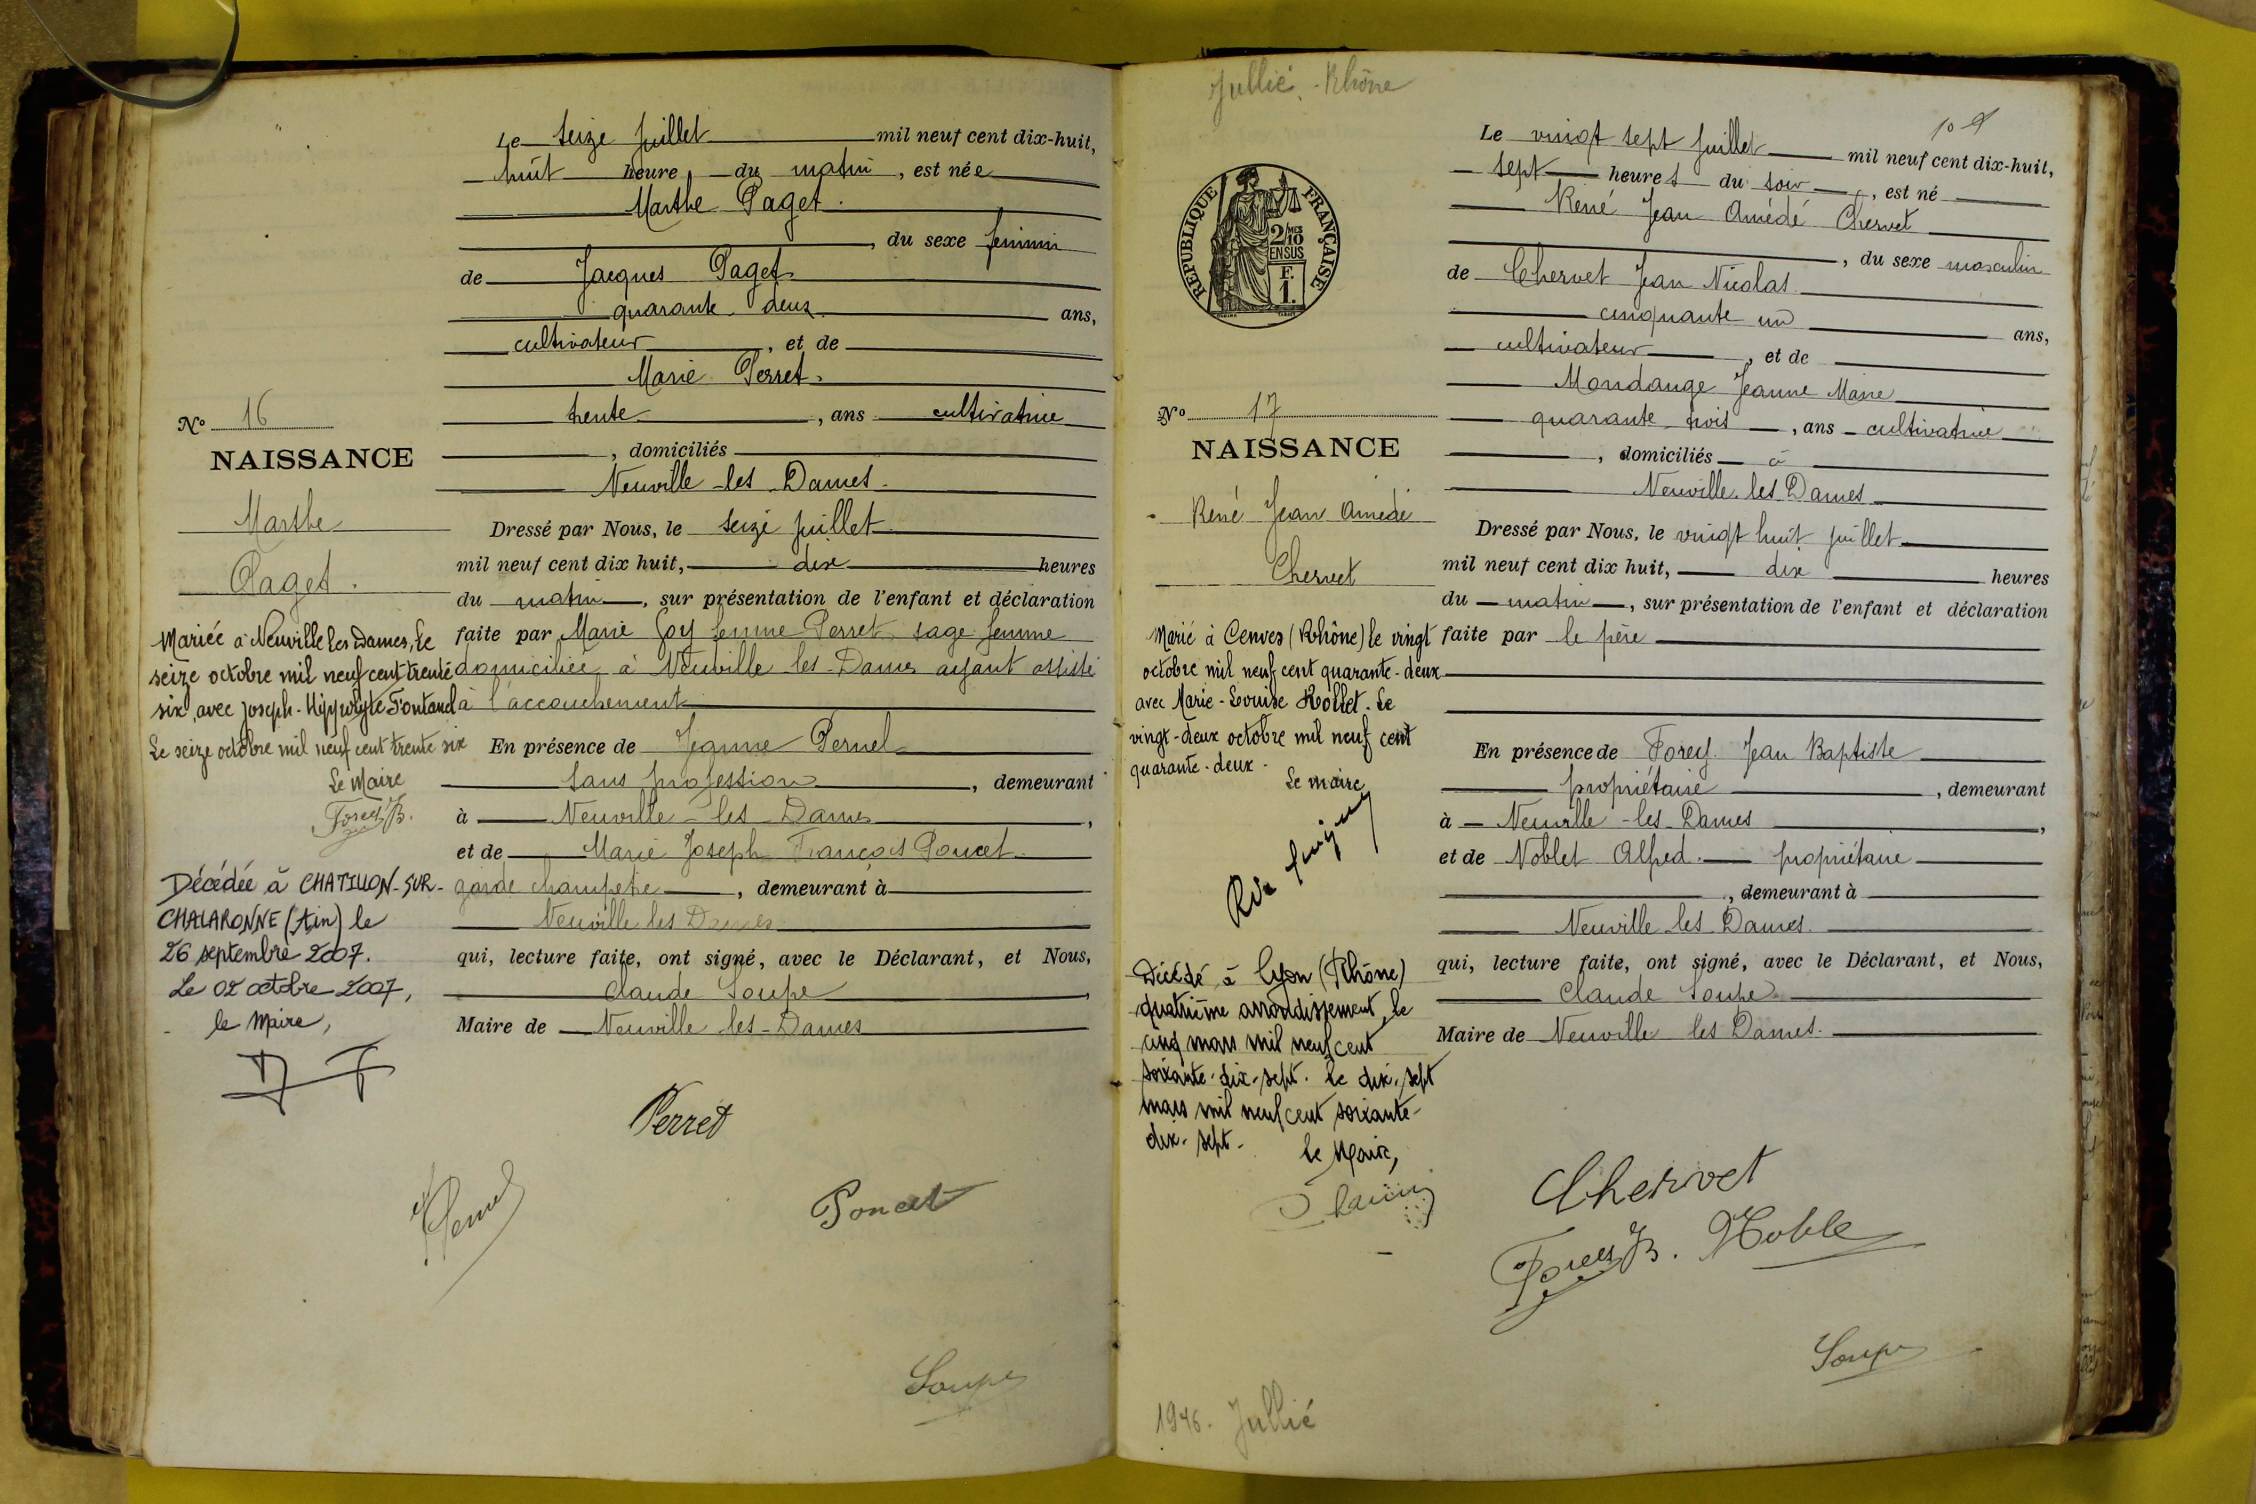 Le seize juillet mil neuf cent dix-huit,
huit heure du matin, est née
Marthe Paget.
, du sexe feminin
de Jacques Paget
quarante deux ans,
cultivateur, et de
Marie Perret,
trente, ans cultivatrice
, domiciliés
Neuville-les-Dames.
Dressé par Nous, le seize juillet
mil neuf cent dix huit, dix heures
du matin, sur présentation de l'enfant et déclaration
faite par Marie Goy femme Perret, sage femme
domiciliée à Neuville les Dames ayant assisté
à l'accouchement
En présence de Jeanne Pernel
sans profession, demeurant
à Neuville-les-Dames,
et de Marie Joseph François Poncet
garde champetre, demeurant à
Neuville les Dames
qui, lecture faite, ont signé, avec le Déclarant, et Nous,
Claude Soupe,
Maire de Neuville les-Dames
Nº 16
NAISSANCE
Marthe
Paget.
Mariée à Neuville les Dames, le
seize octobre mil neuf cent trente
six, avec Joseph-Hippolyte Fontanel
Le seize octobre mil neuf cent trente six
Le Maire
Forey JB.
Décédée à CHATILLON-SUR-
CHALARONNE (Ain) le
26 septembre 2007.
Le 02 octobre 2007,
le Maire,
Perret
Pernel
Poncet
Soupe
Jullié - Rhône
109
Le vingt sept juillet mil neuf cent dix-huit,
sept heures du soir, est né
René Jean Amédé Chervet
, du sexe masculin
de Chervet Jean Nicolas
cinquante un ans,
cultivateur, et de
Mondange Jeanne Marie
quarante trois, ans cultivatrice
, domiciliés à
Neuville les Dames
Dressé par Nous, le vingt huit juillet
mil neuf cent dix huit, dix heures
du matin, sur présentation de l'enfant et déclaration
faite par le père
En présence de Forey Jean Baptiste
propriétaire, demeurant
à Neuville-les-Dames,
et de Noblet Alfred. propriétaire
, demeurant à
Neuville les Dames.
qui, lecture faite, ont signé, avec le Déclarant, et Nous,
Claude Soupe
Maire de Neuville les Dames.
RÉPUBLIQUE FRANÇAISE
2/10 MES
EN SUS
F.
1.
Nº 17
NAISSANCE
René Jean Amédé
Chervet
Marié à Cenves (Rhône) le vingt
octobre mil neuf cent quarante-deux
avec Marie-Louise Rollet. Le
vingt-deux octobre mil neuf cent
quarante-deux.
Le maire
Décédé à Lyon (Rhône)
quatrième arrondissement, le
cinq mars mil neuf cent
soixante-dix-sept. Le dix-sept
mars mil neuf cent soixante-
dix-sept.
Le Maire,
Chervet
Forey JB. Noblet
Soupe
1946. Jullié